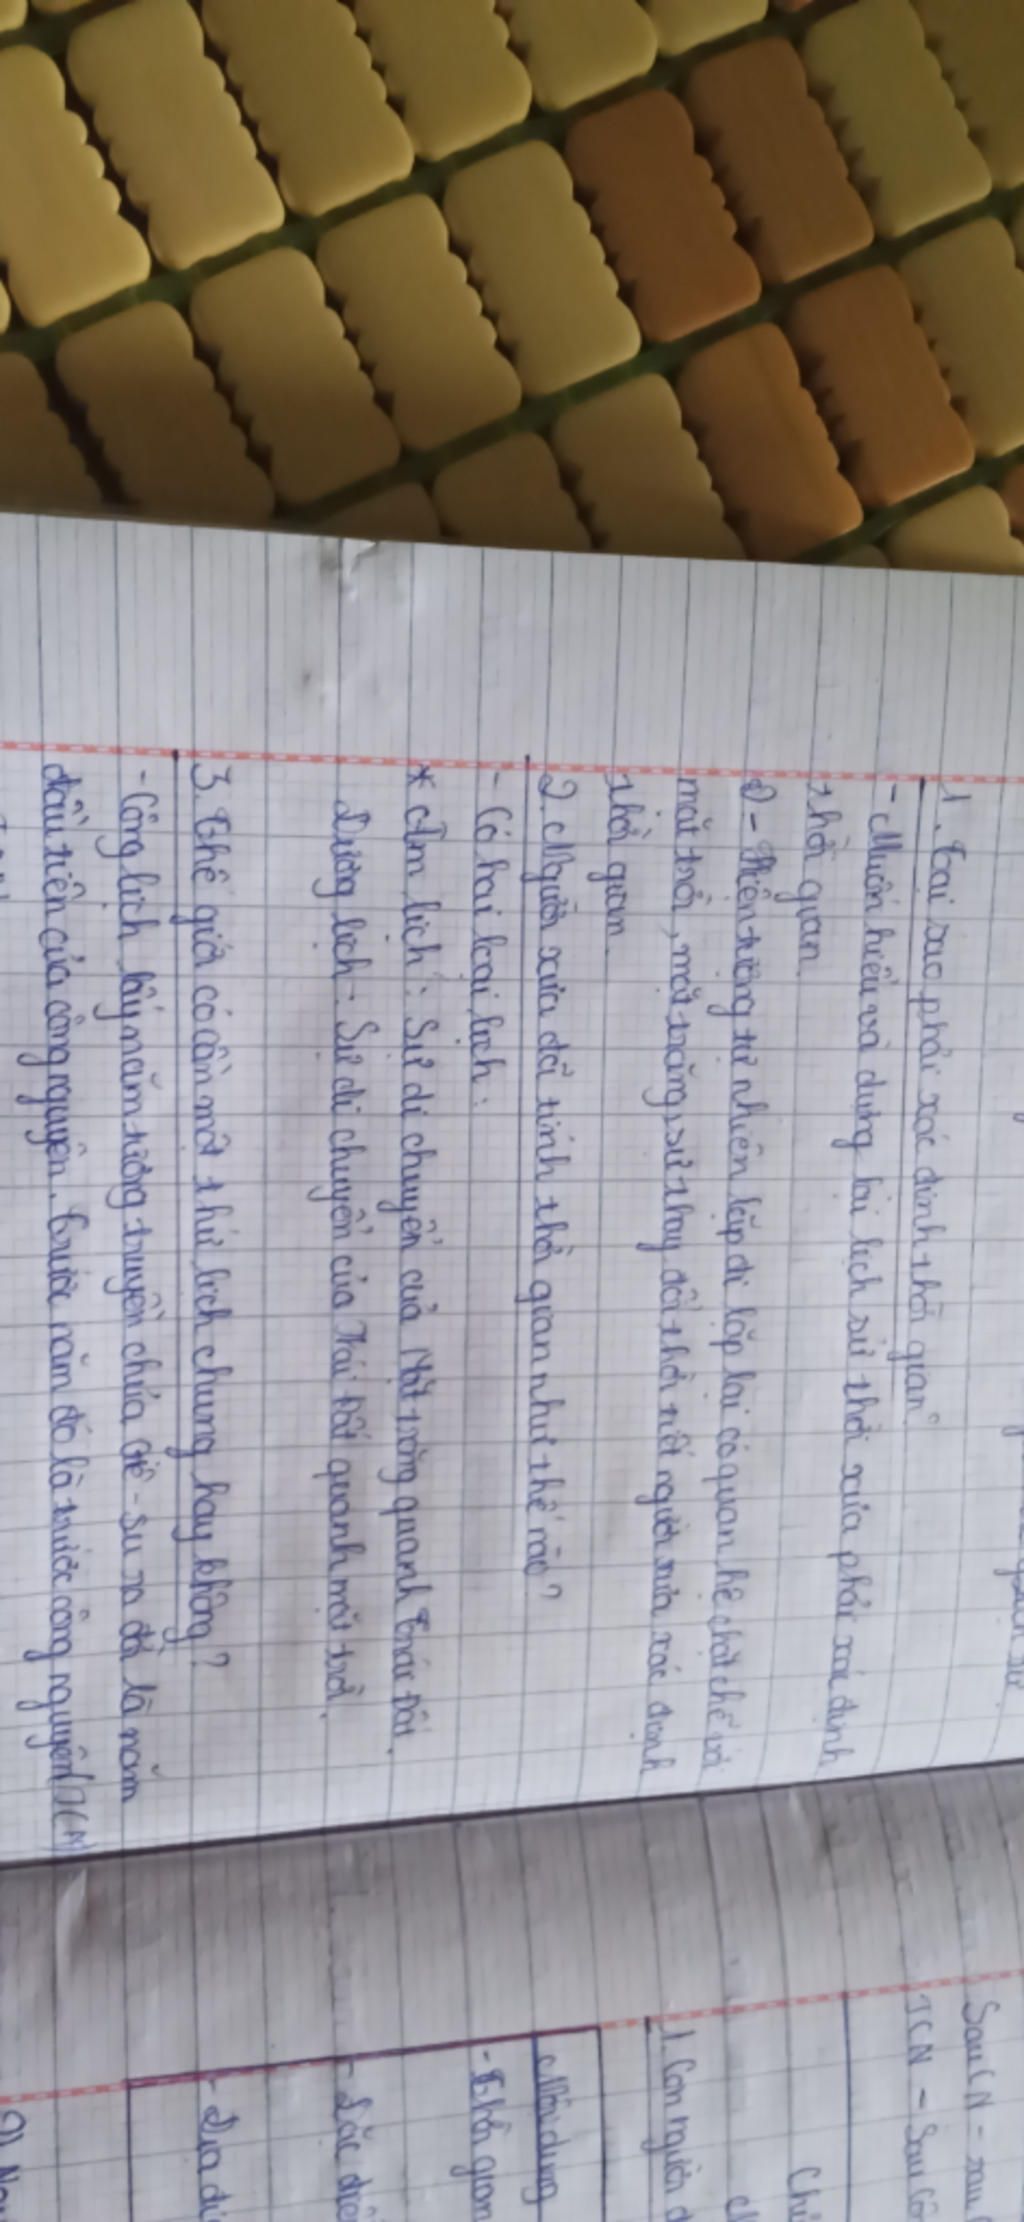 1. Tại sao phải xác định thời gian?
- Muốn hiểu và dựng lại lịch sử thời xưa phải xác định
thời gian.
- Hiện tượng tự nhiên lặp đi lặp lại có quan hệ chặt chẽ với
mặt trời, mặt trăng, sự thay đổi thời tiết người xưa xác định
thời gian.
2. Người xưa đã tính thời gian như thế nào?
- Có hai loại lịch:
* Âm lịch: Sự di chuyển của Mặt trăng quanh trái đất.
Dương lịch: Sự di chuyển của Trái Đất quanh mặt trời.
3. Thế giới có cần một thứ lịch chung hay không?
- Công lịch lấy năm tương truyền chúa Giê-su ra đời là năm
đầu tiên của công nguyên. Trước năm đó là trước công nguyên (TCN)
Sau CN - sau
TCN - Sau Cô
1. Con người
Nội dung
- Thời gian
- Đặc điể